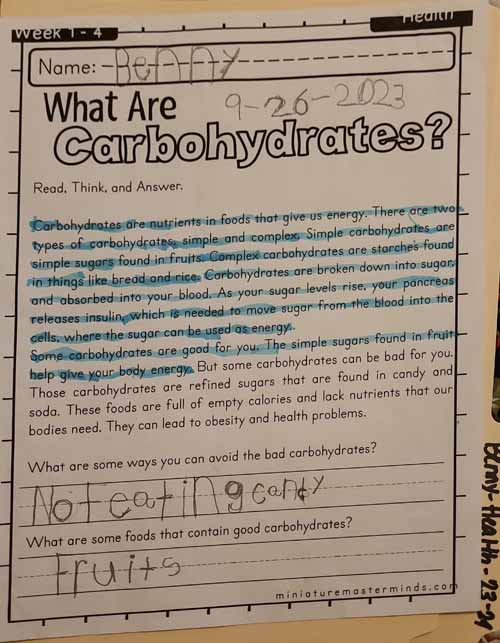 Week 1 - 4
Health
Name: Benny
9-26-2023
What Are
Carbohydrates?
Read, Think, and Answer.
Carbohydrates are nutrients in foods that give us energy. There are two
types of carbohydrates, simple and complex. Simple carbohydrates are
simple sugars found in fruits. Complex carbohydrates are starches found
in things like bread and rice. Carbohydrates are broken down into sugar,
and absorbed into your blood. As your sugar levels rise, your pancreas
releases insulin, which is needed to move sugar from the blood into the
cells, where the sugar can be used as energy.
Some carbohydrates are good for you. The simple sugars found in fruit
help give your body energy. But some carbohydrates can be bad for you.
Those carbohydrates are refined sugars that are found in candy and
soda. These foods are full of empty calories and lack nutrients that our
bodies need. They can lead to obesity and health problems.
What are some ways you can avoid the bad carbohydrates?
Not eating candy
What are some foods that contain good carbohydrates?
Fruits
miniaturemasterminds.com
Health-23-24